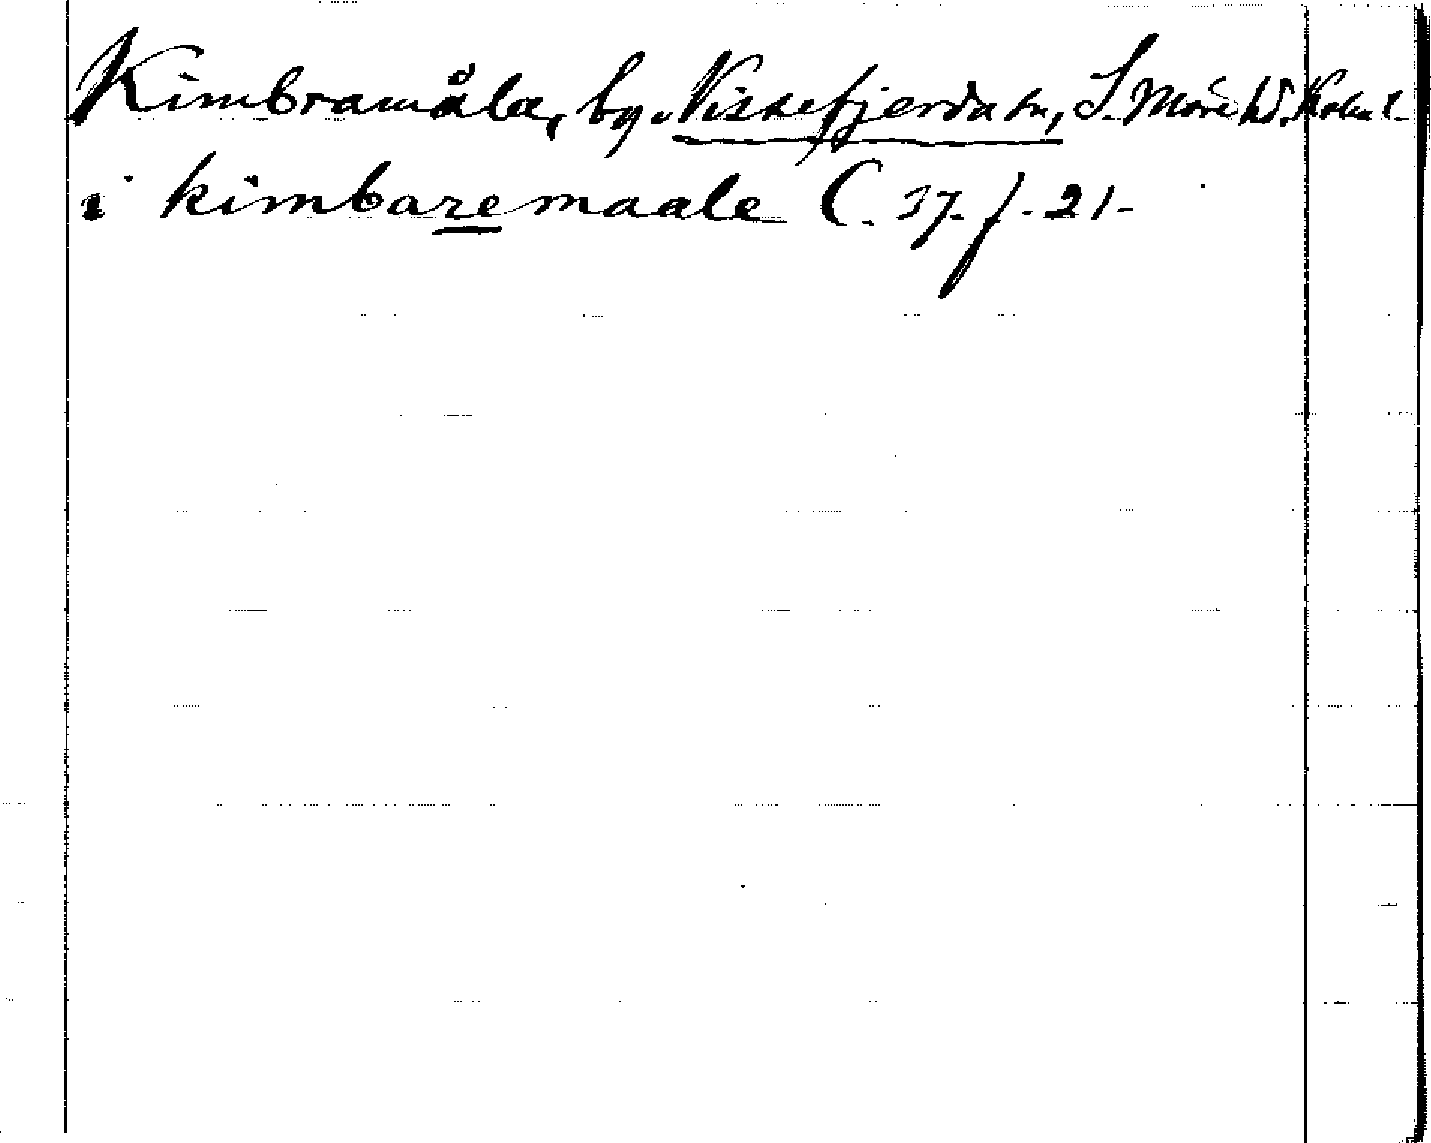 Kimbramåla, by. Vissefjerda sn, S. Möre hd. Kalm. l.
i kimbaremaale C. 37. f. 21-